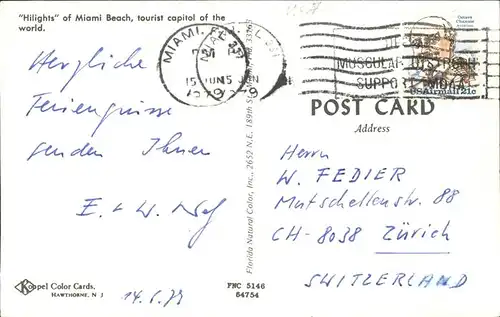 "Hilights" of Miami Beach, tourist capitol of the
world.
Herzliche
Feriengrüsse
senden Ihnen
E. + W.
Koppel Color Cards.
HAWTHORNE, N J
14.6.79
Florida Natural Color, Inc., 2652 N.E. 189th St.
FNC 5146
64754
MIAMI, FL 331
PM
15 JUN
1979
MUSCULAR DYSTROPHY
SUPPORT MDA
USAirmail 21c
Octave
Chanute
POST CARD
Address
Herrn
W. FEDIER
Mutschellenstr. 88
CH-8038 Zürich
SWITZERLAND